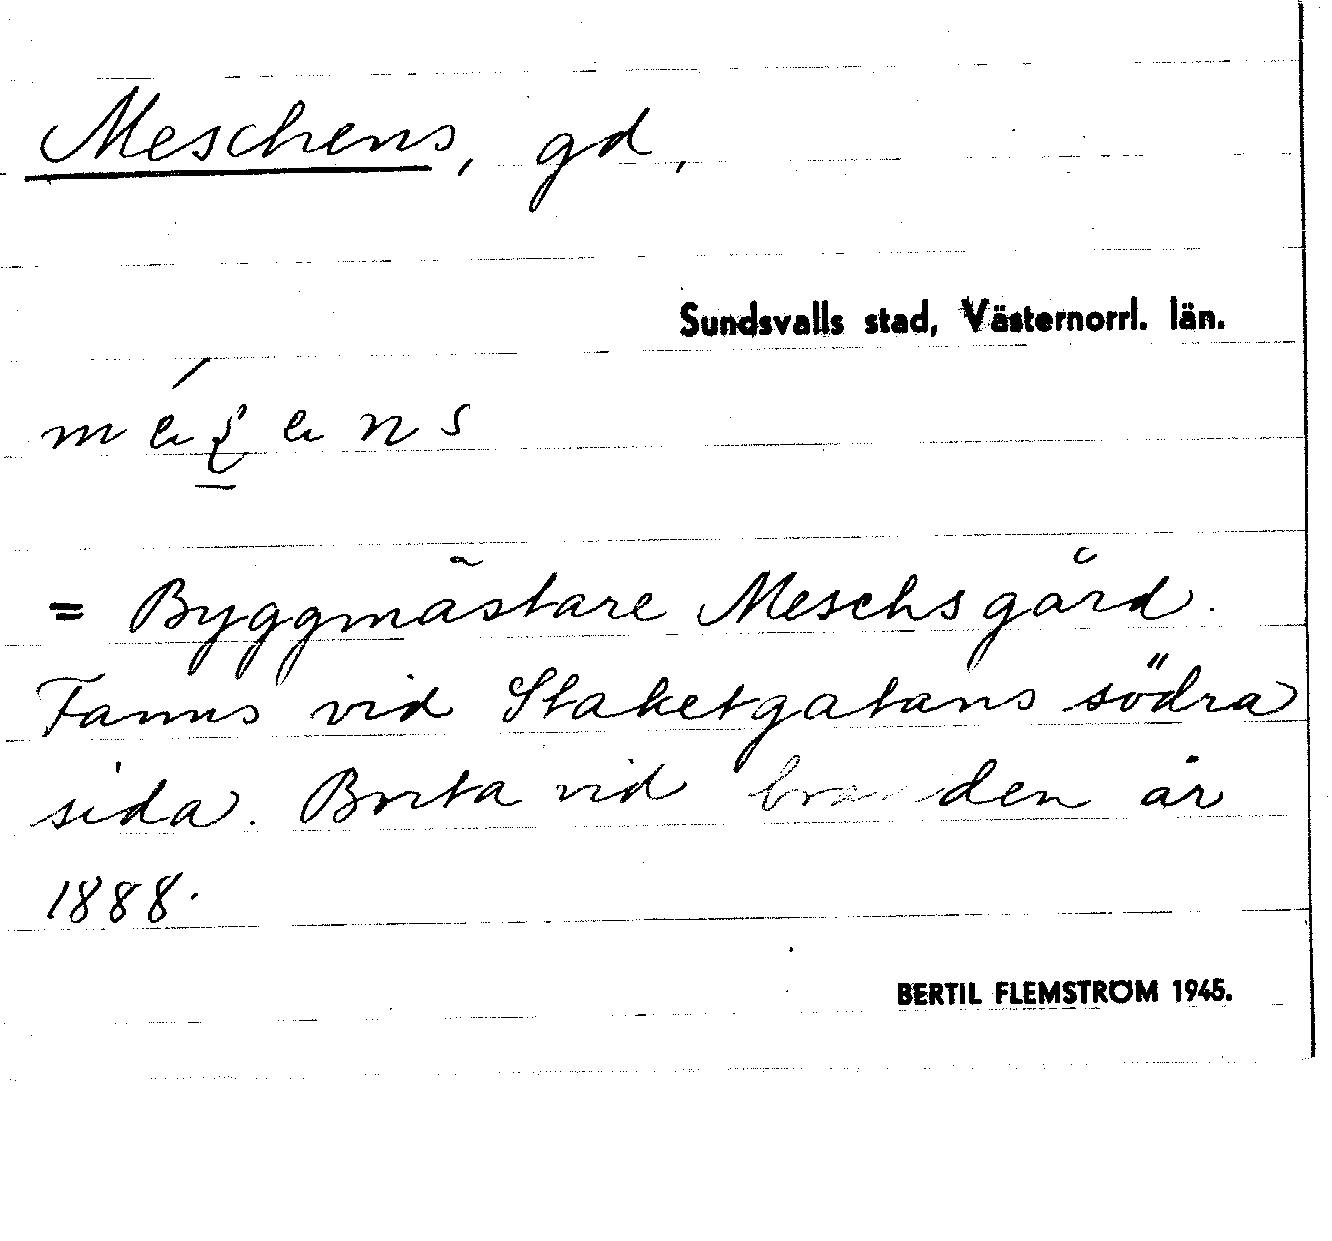 Meschens, gd,
Sundsvalls stad, Västernorrl. län.
= Byggmästare Meschsgård.
Fanns vid Staketgatans södra
sida. Borta vid branden år
1888.
BERTIL FLEMSTRÖM 1945.